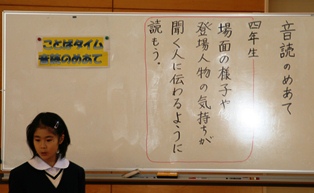 音読のめあて
四年生
場面の様子や
登場人物の気持ちが
聞く人に伝わるように
読もう。
ことばタイム
音読のめあて